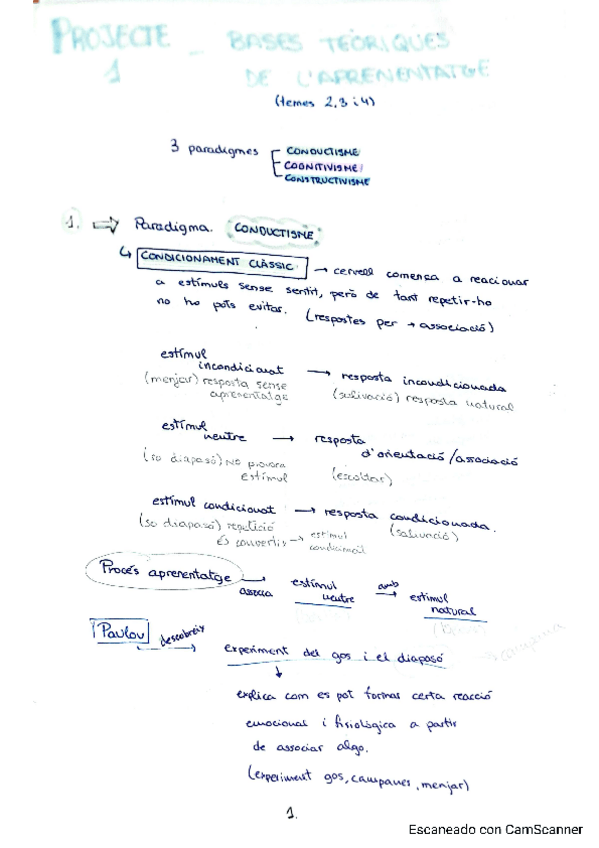 PROJECTE 1 - BASES TEÒRIQUES
DE L'APRENENTATGE
(temes 2, 3 i 4)
3 paradigmes
CONDUCTISME
COGNITIVISME
CONSTRUCTIVISME
1. ⇒ Paradigma. CONDUCTISME
↳ CONDICIONAMENT CLÀSSIC → cervell comença a reacionar
a estímuls sense sentit, però de tant repetir-ho
no ho pots evitar. (respostes per → associació)
estímul
incondicionat → resposta incondicionada
(menjar) resposta sense (salivació) resposta natural
aprenentatge
estímul
neutre → resposta
d'orientació/associació
(so diapasó) NO provoca (escoltar)
estímul
estímul condicionat → resposta condicionada.
(so diapasó) repetició (salivació)
és converteix → estímul
condicionat
Procés aprenentatge → estímul amb → estímul
associa neutre natural
Pavlov descobreix →
experiment del gos i el diapasó → campana
↓
explica com es pot formar certa reacció
emocional i fisiològica a partir
de associar algo.
(experiment gos, campanes, menjar)
1.
Escaneado con CamScanner